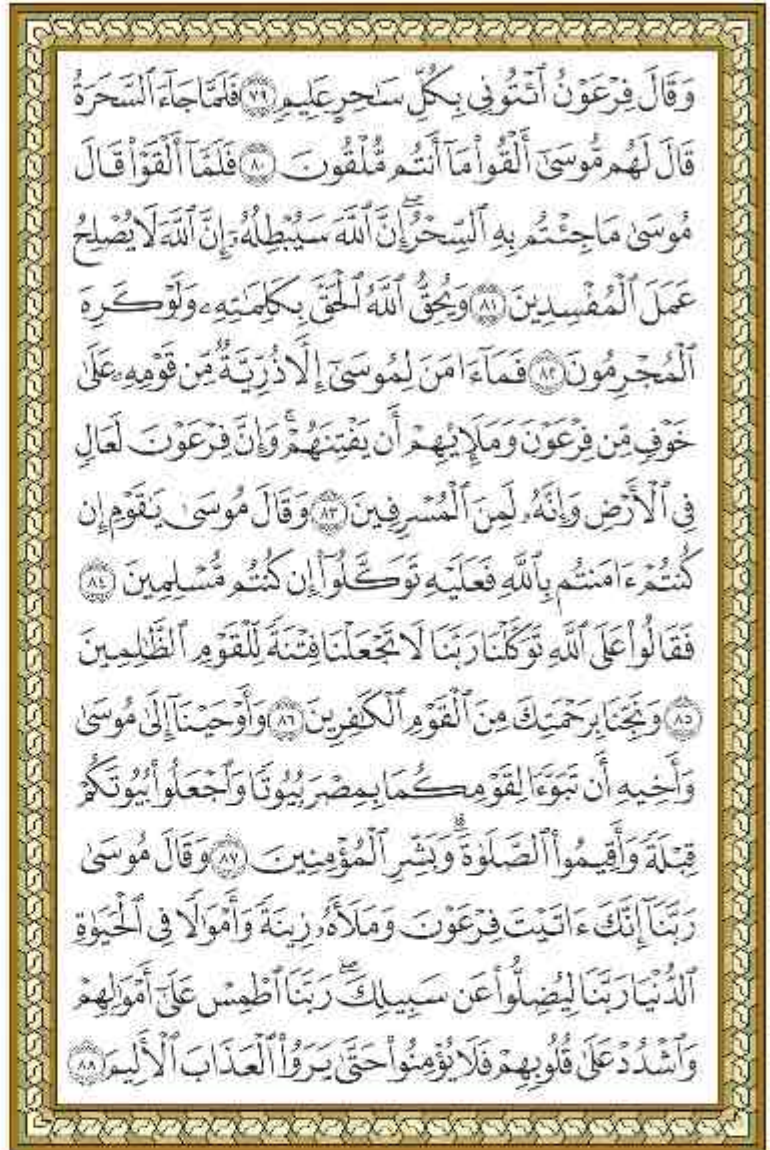 وَقَالَ فِرْعَوْنُ ٱئْتُونِى بِكُلِّ سَـٰحِرٍ عَلِيمٍ ٧٩ فَلَمَّا جَآءَ ٱلسَّحَرَةُ
قَالَ لَهُم مُّوسَىٰٓ أَلْقُوا۟ مَآ أَنتُم مُّلْقُونَ ٨٠ فَلَمَّآ أَلْقَوْا۟ قَالَ
مُوسَىٰ مَا جِئْتُم بِهِ ٱلسِّحْرُ ۖ إِنَّ ٱللَّهَ سَيُبْطِلُهُۥٓ ۖ إِنَّ ٱللَّهَ لَا يُصْلِحُ
عَمَلَ ٱلْمُفْسِدِينَ ٨١ وَيُحِقُّ ٱللَّهُ ٱلْحَقَّ بِكَلِمَـٰتِهِۦ وَلَوْ كَرِهَ
ٱلْمُجْرِمُونَ ٨٢ فَمَآ ءَامَنَ لِمُوسَىٰٓ إِلَّا ذُرِّيَّةٌ مِّن قَوْمِهِۦ عَلَىٰ
خَوْفٍ مِّن فِرْعَوْنَ وَمَلَإِي۟هِمْ أَن يَفْتِنَهُمْ ۚ وَإِنَّ فِرْعَوْنَ لَعَالٍ
فِى ٱلْأَرْضِ وَإِنَّهُۥ لَمِنَ ٱلْمُسْرِفِينَ ٨٣ وَقَالَ مُوسَىٰ يَـٰقَوْمِ إِن
كُنتُمْ ءَامَنتُم بِٱللَّهِ فَعَلَيْهِ تَوَكَّلُوٓا۟ إِن كُنتُم مُّسْلِمِينَ ٨٤
فَقَالُوا۟ عَلَى ٱللَّهِ تَوَكَّلْنَا رَبَّنَا لَا تَجْعَلْنَا فِتْنَةً لِّلْقَوْمِ ٱلظَّـٰلِمِينَ
٨٥ وَنَجِّنَا بِرَحْمَتِكَ مِنَ ٱلْقَوْمِ ٱلْكَـٰفِرِينَ ٨٦ وَأَوْحَيْنَآ إِلَىٰ مُوسَىٰ
وَأَخِيهِ أَن تَبَوَّءَا لِقَوْمِكُمَا بِمِصْرَ بُيُوتًا وَٱجْعَلُوا۟ بُيُوتَكُمْ
قِبْلَةً وَأَقِيمُوا۟ ٱلصَّلَوٰةَ ۗ وَبَشِّرِ ٱلْمُؤْمِنِينَ ٨٧ وَقَالَ مُوسَىٰ
رَبَّنَآ إِنَّكَ ءَاتَيْتَ فِرْعَوْنَ وَمَلَأَهُۥ زِينَةً وَأَمْوَٰلًا فِى ٱلْحَيَوٰةِ
ٱلدُّنْيَا رَبَّنَا لِيُضِلُّوا۟ عَن سَبِيلِكَ ۖ رَبَّنَا ٱطْمِسْ عَلَىٰٓ أَمْوَٰلِهِمْ
وَٱشْدُدْ عَلَىٰ قُلُوبِهِمْ فَلَا يُؤْمِنُوا۟ حَتَّىٰ يَرَوُا۟ ٱلْعَذَابَ ٱلْأَلِيمَ ٨٨